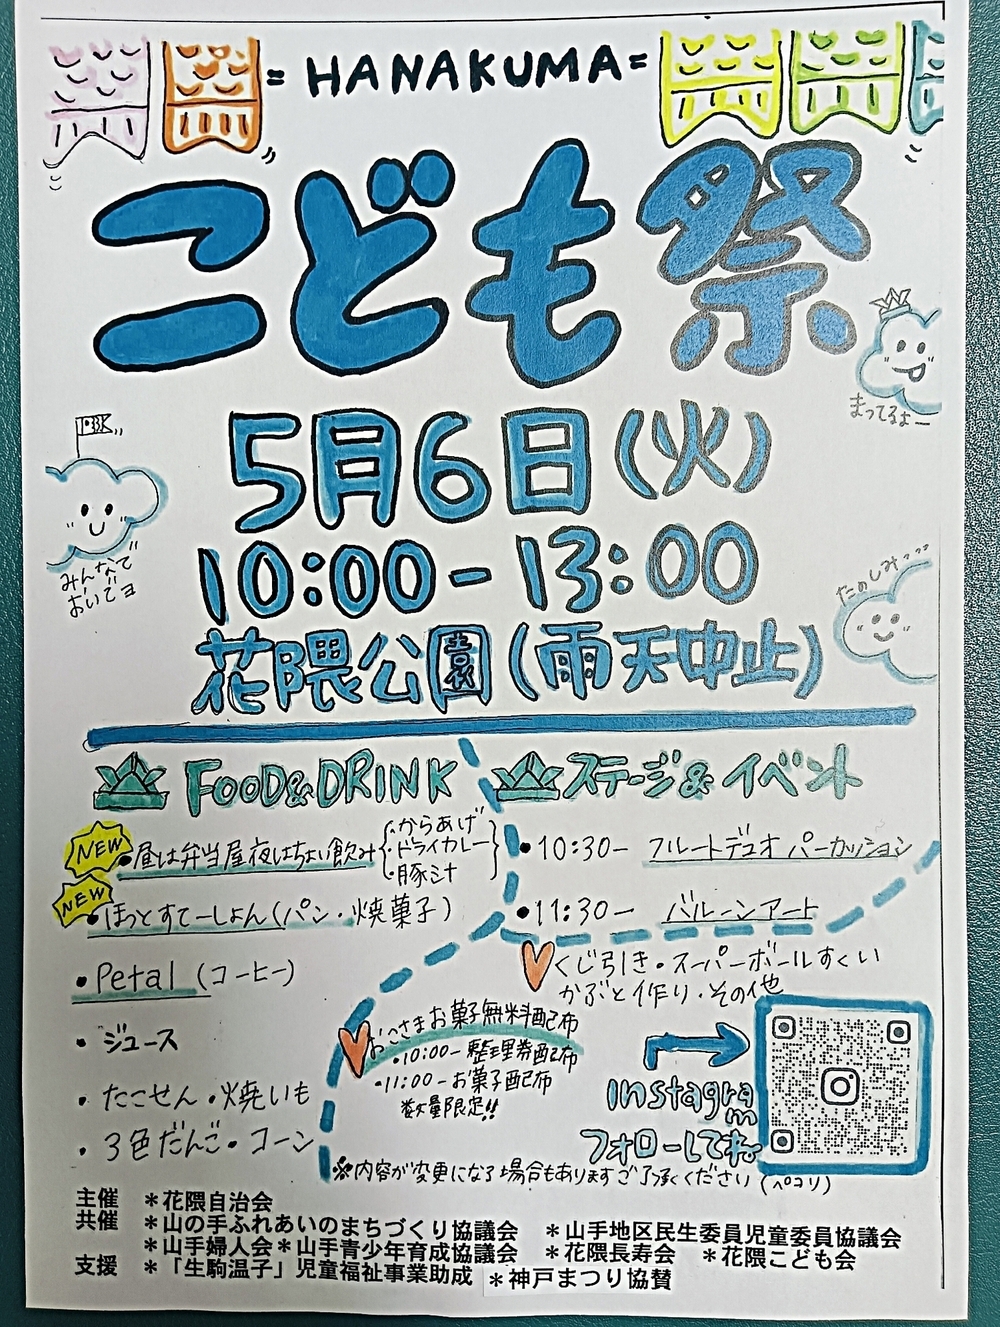 = HANAKUMA =
こども祭
まってるよー
PBK
みんなで
おいでヨ
5月6日(火)
10:00-13:00
たのしみ
花隈公園(雨天中止)
FOOD&DRINK
NEW
・昼は弁当屋夜はちょい飲み
・からあげ
・ドライカレー
・豚汁
NEW
・ほっとすてーしょん(パン・焼菓子)
・Petal(コーヒー)
・ジュース
・たこせん・焼いも
・3色だんご・コーン
ステージ&イベント
・10:30- フルートデュオ パーカッション
・11:30- バルーンアート
くじ引き・スーパーボールすくい
かぶと作り・その他
おこさまお菓子無料配布
・10:00-整理券配布
・11:00-お菓子配布
数量限定!!
Instagram
フォローしてね
※内容が変更になる場合もありますご了承ください(ペコリ)
主催 *花隈自治会
共催 *山の手ふれあいのまちづくり協議会 *山手地区民生委員児童委員協議会
*山手婦人会*山手青少年育成協議会 *花隈長寿会 *花隈こども会
支援 *「生駒温子」児童福祉事業助成 *神戸まつり協賛